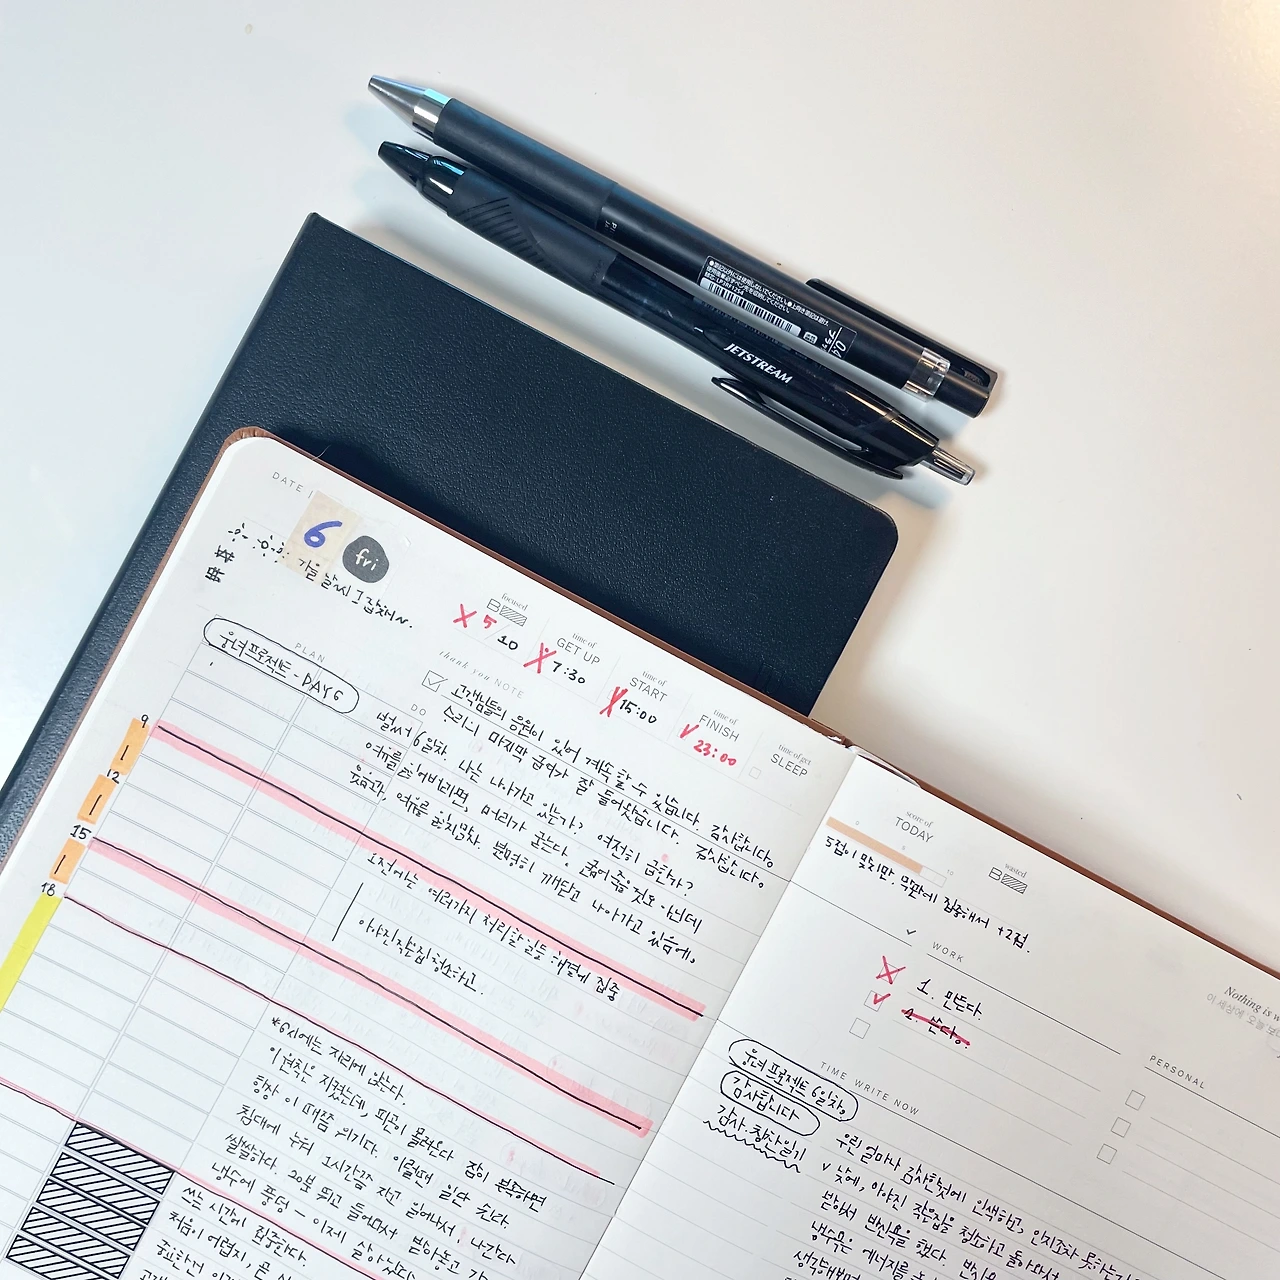 JETSTREAM
DATE
6 fri
가을 날씨 그 잡채~.
focused
5/10
time of
GET UP
7:30
time of
START
15:00
time of
FINISH
23:00
time of get
SLEEP
PLAN
웅녀프로젝트 - DAY6
thank you NOTE
고객님들의 응원이 있어 계속 할 수 있습니다. 감사합니다.
수리의 마지막 급여가 잘 들어왔습니다. 감사합니다.
DO
벌써 6일차. 나는 나아가고 있는가? 여전히 급한가?
여유를 잃어버리면, 머리가 굳는다. 굶어 죽을 것도 아닌데
조급과, 여유를 분명히 깨닫고 나아가고 있음에,
9
12
15
18
오전에는 여러가지 처리할 일들 해결에 집중
아야진작은집 청소하고.
*6시에는 자리에 앉는다.
이 원칙은 지켰는데, 피곤이 몰려온다 잠이 부족하면
항상 이 때쯤 위기다. 이럴땐 일단 잔다
침대에 누워 1시간쯤 자고 일어나서, 나간다
쌀쌀하다. 20분 뛰고 들어와서 받아놓고
냉수에 풍덩 - 이제 살아났다
쓰는 시간에 집중한다.
처음이 어렵지,
중요한건
score of
TODAY
5점이 맞지만, 막판에 집중해서 +2점.
wasted
WORK
1. 만든다.
2. 쓴다.
Nothing is w
이 세상에 오늘 보
PERSONAL
TIME WRITE NOW
웅녀 프로젝트 6일차.
감사합니다
감사.칭찬일기
우린 얼마나 감사한것에 인색하고, 인지조차 못하는
✓ 낮에, 아야진 작은집을 청소하고 돌아와서
받아서 반신욕을 했다. 반신욕
냉수욕은 에너지를
생각해보면